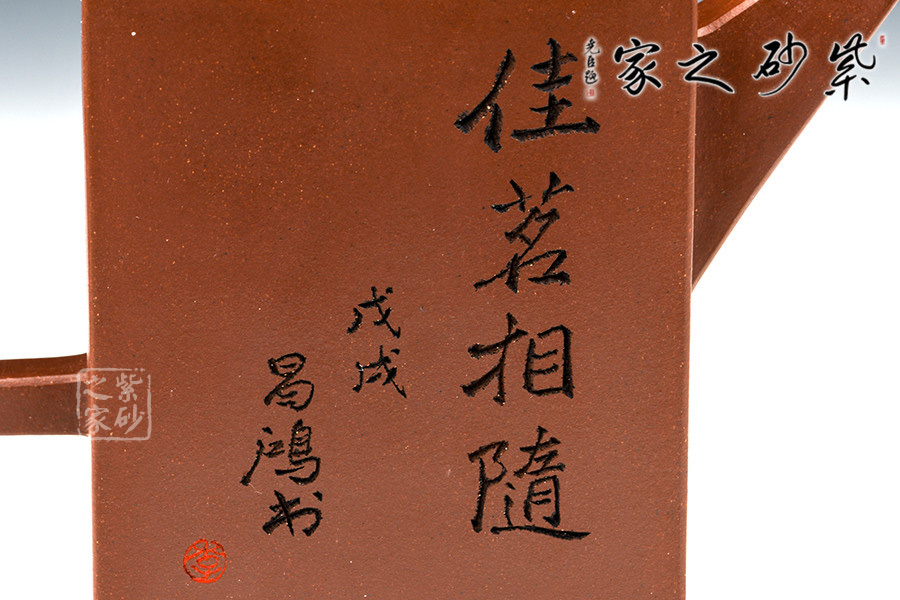 佳茗相隨
戊戌
昌鸿书
紫砂之家
紫砂之家